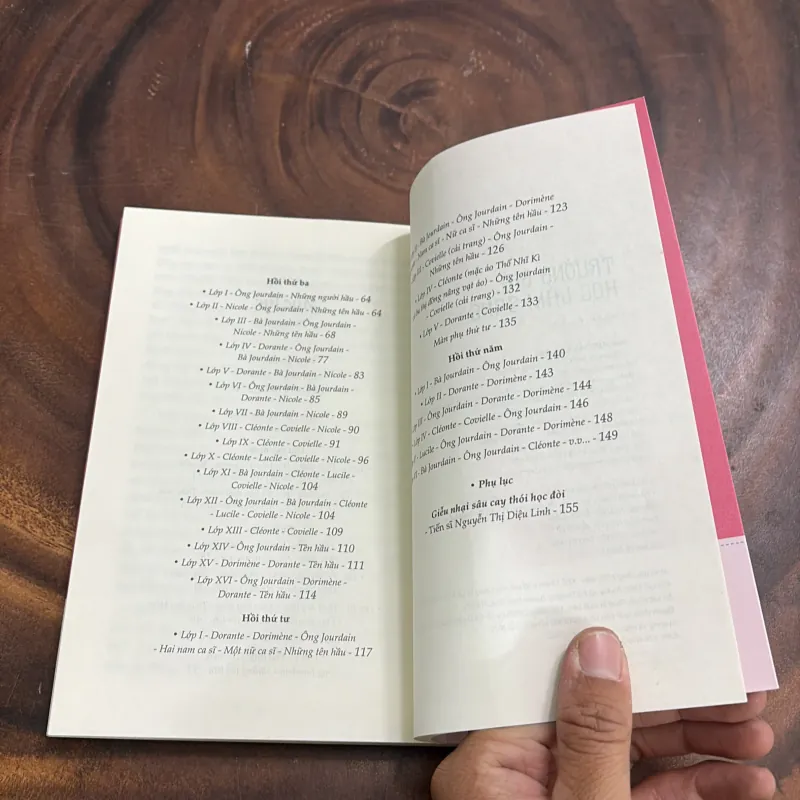 Hồi thứ ba
• Lớp I - Ông Jourdain - Những người hầu - 64
• Lớp II - Nicole - Ông Jourdain - Những tên hầu - 64
• Lớp III - Bà Jourdain - Ông Jourdain -
Nicole - Những tên hầu - 68
• Lớp IV - Dorante - Ông Jourdain -
Bà Jourdain - Nicole - 77
• Lớp V - Dorante - Bà Jourdain - Nicole - 83
• Lớp VI - Ông Jourdain - Bà Jourdain -
Dorante - Nicole - 85
• Lớp VII - Bà Jourdain - Nicole - 89
• Lớp VIII - Cléonte - Covielle - Nicole - 90
• Lớp IX - Cléonte - Covielle - 91
• Lớp X - Cléonte - Lucile - Covielle - Nicole - 96
• Lớp XI - Bà Jourdain - Cléonte - Lucile -
Covielle - Nicole - 104
• Lớp XII - Ông Jourdain - Bà Jourdain - Cléonte
- Lucile - Covielle - Nicole - 104
• Lớp XIII - Cléonte - Covielle - 109
• Lớp XIV - Ông Jourdain - Tên hầu - 110
• Lớp XV - Dorimène - Dorante - Tên hầu - 111
• Lớp XVI - Ông Jourdain - Dorimène -
Dorante - Tên hầu - 114
Hồi thứ tư
• Lớp I - Dorante - Dorimène - Ông Jourdain
- Hai nam ca sĩ - Một nữ ca sĩ - Những tên hầu - 117
- Bà Jourdain - Ông Jourdain - Dorimène
- Nam ca sĩ - Nữ ca sĩ - Những tên hầu - 123
- Covielle (cải trang) - Ông Jourdain -
Những tên hầu - 126
Lớp IV - Cléonte (mặc áo Thổ Nhĩ Kì
thị đồng nâng vạt áo) - Ông Jourdain
- Covielle (cải trang) - 132
• Lớp V - Dorante - Covielle - 133
Màn phụ thứ tư - 135
Hồi thứ năm
Lớp I - Bà Jourdain - Ông Jourdain - 140
• Lớp II - Dorante - Dorimène - 143
III - Ông Jourdain - Dorante - Dorimène - 144
IV - Cléonte - Covielle - Ông Jourdain - 146
- Lucile - Ông Jourdain - Dorante - Dorimène - 148
- Bà Jourdain - Ông Jourdain - Cléonte - v.v... - 149
• Phụ lục
Giễu nhại sâu cay thói học đòi
- Tiến sĩ Nguyễn Thị Diệu Linh - 155